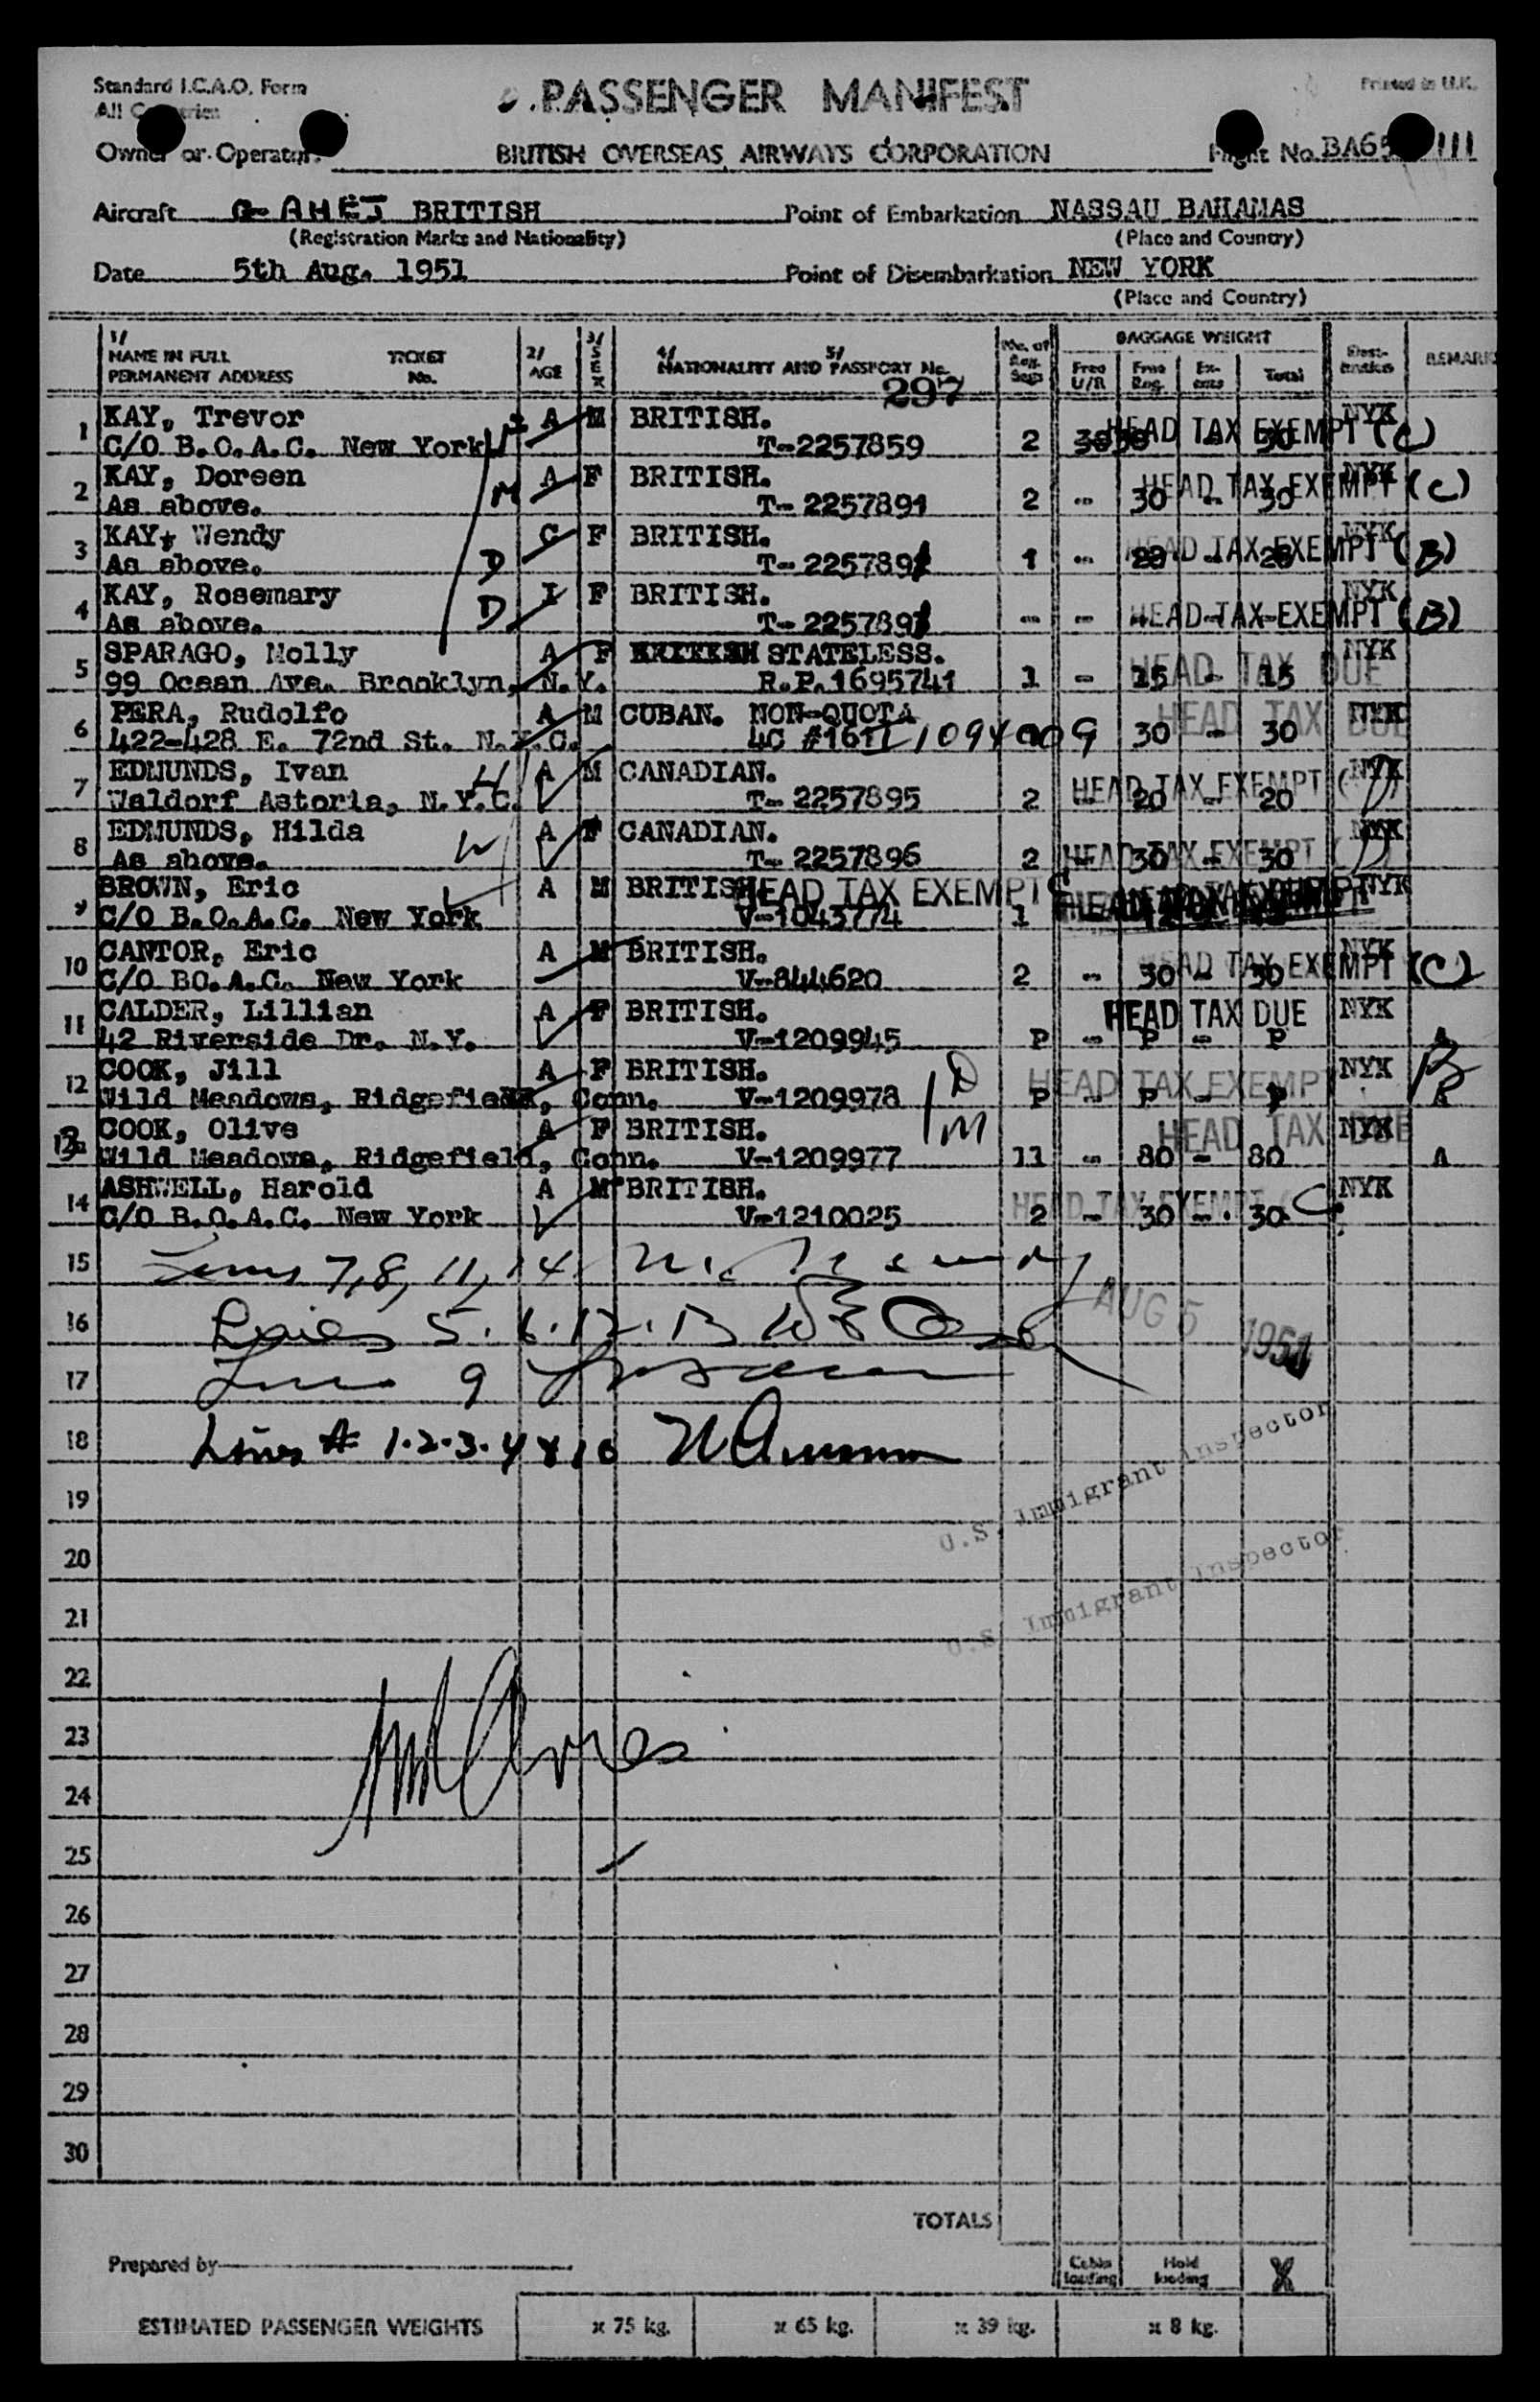 Standard I.C.A.O. Form
PASSENGER MANIFEST
Printed in U.K.
All
Owner or Operator
BRITISH OVERSEAS AIRWAYS CORPORATION
Flight No. BA65 111
Aircraft G-AHEJ BRITISH
Point of Embarkation NASSAU BAHAMAS
(Registration Marks and Nationality)
(Place and Country)
Date 5th Aug. 1951
Point of Disembarkation NEW YORK
(Place and Country)
1/ NAME IN FULL PERMANENT ADDRESS
TICKET No.
2/ AGE
3/ SEX
4/ NATIONALITY AND 5/ PASSPORT No.
297
BAGGAGE WEIGHT
Free U/R
Free Reg.
Total
REMARK
1 KAY, Trevor A M BRITISH. NYK
C/O B.O.A.C. New York H T-2257859 2 HEAD TAX EXEMPT (C)
2 KAY, Doreen A F BRITISH. NYK
As above. M T-2257891 2 - 30 - 30 HEAD TAX EXEMPT (C)
3 KAY, Wendy C F BRITISH. NYK
As above. D 1 - HEAD TAX EXEMPT (B)
4 KAY, Rosemary I F BRITISH. NYK
As above. D - - HEAD TAX EXEMPT (B)
5 SPARAGO, Molly A F STATELESS. NYK
99 Ocean Ave. Brooklyn, N.Y. R.P. 1695741 1 - 15 - 15 HEAD TAX DUE
6 PERA, Rudolfo A M CUBAN. NON-QUOTA NYK
422-428 E. 72nd St. N.Y.C. 4C 30 - 30 HEAD TAX DUE
7 EDMUNDS, Ivan H A M CANADIAN. NYK
Waldorf Astoria, N.Y.C. T-2257895 2 - 20 - 20 HEAD TAX EXEMPT
8 EDMUNDS, Hilda W A F CANADIAN. NYK
As above. T-2257896 2 - 30 - 30 HEAD TAX EXEMPT
9 BROWN, Eric A M BRITISH HEAD TAX EXEMPT NYK
C/O B.O.A.C. New York V-1043774 1
10 CANTOR, Eric A M BRITISH. NYK
C/O BO.A.C. New York V-844620 2 - 30 - 30 HEAD TAX EXEMPT (C)
11 CALDER, Lillian A F BRITISH. HEAD TAX DUE NYK
42 Riverside Dr. N.Y. V-1209945 P - P - P A
12 COOK, Jill A F BRITISH. D HEAD TAX EXEMPT NYK B
Wild Meadows, Ridgefield, Conn. V-1209978 P - P - P
13 COOK, Olive A F BRITISH. M HEAD TAX DUE NYK
Wild Meadows, Ridgefield, Conn. V-1209977 11 - 80 - 80 A
14 ASHWELL, Harold A M BRITISH. NYK
C/O B.O.A.C. New York V-1210025 2 - 30 - 30 HEAD TAX EXEMPT C
15 7, 8, 11, 14
16 Lines 5. 6. 12. 13 AUG 5 1951
17 Line 9
18 Lines # 1.2.3.4 & 10
19
U.S. Immigrant Inspector
20
21
U.S. Immigrant Inspector
22
23
24
25
26
27
28
29
30
TOTALS
Prepared by
Cabin loading
Hold loading
X
ESTIMATED PASSENGER WEIGHTS x 75 kg. x 65 kg. x 39 kg. x 8 kg.